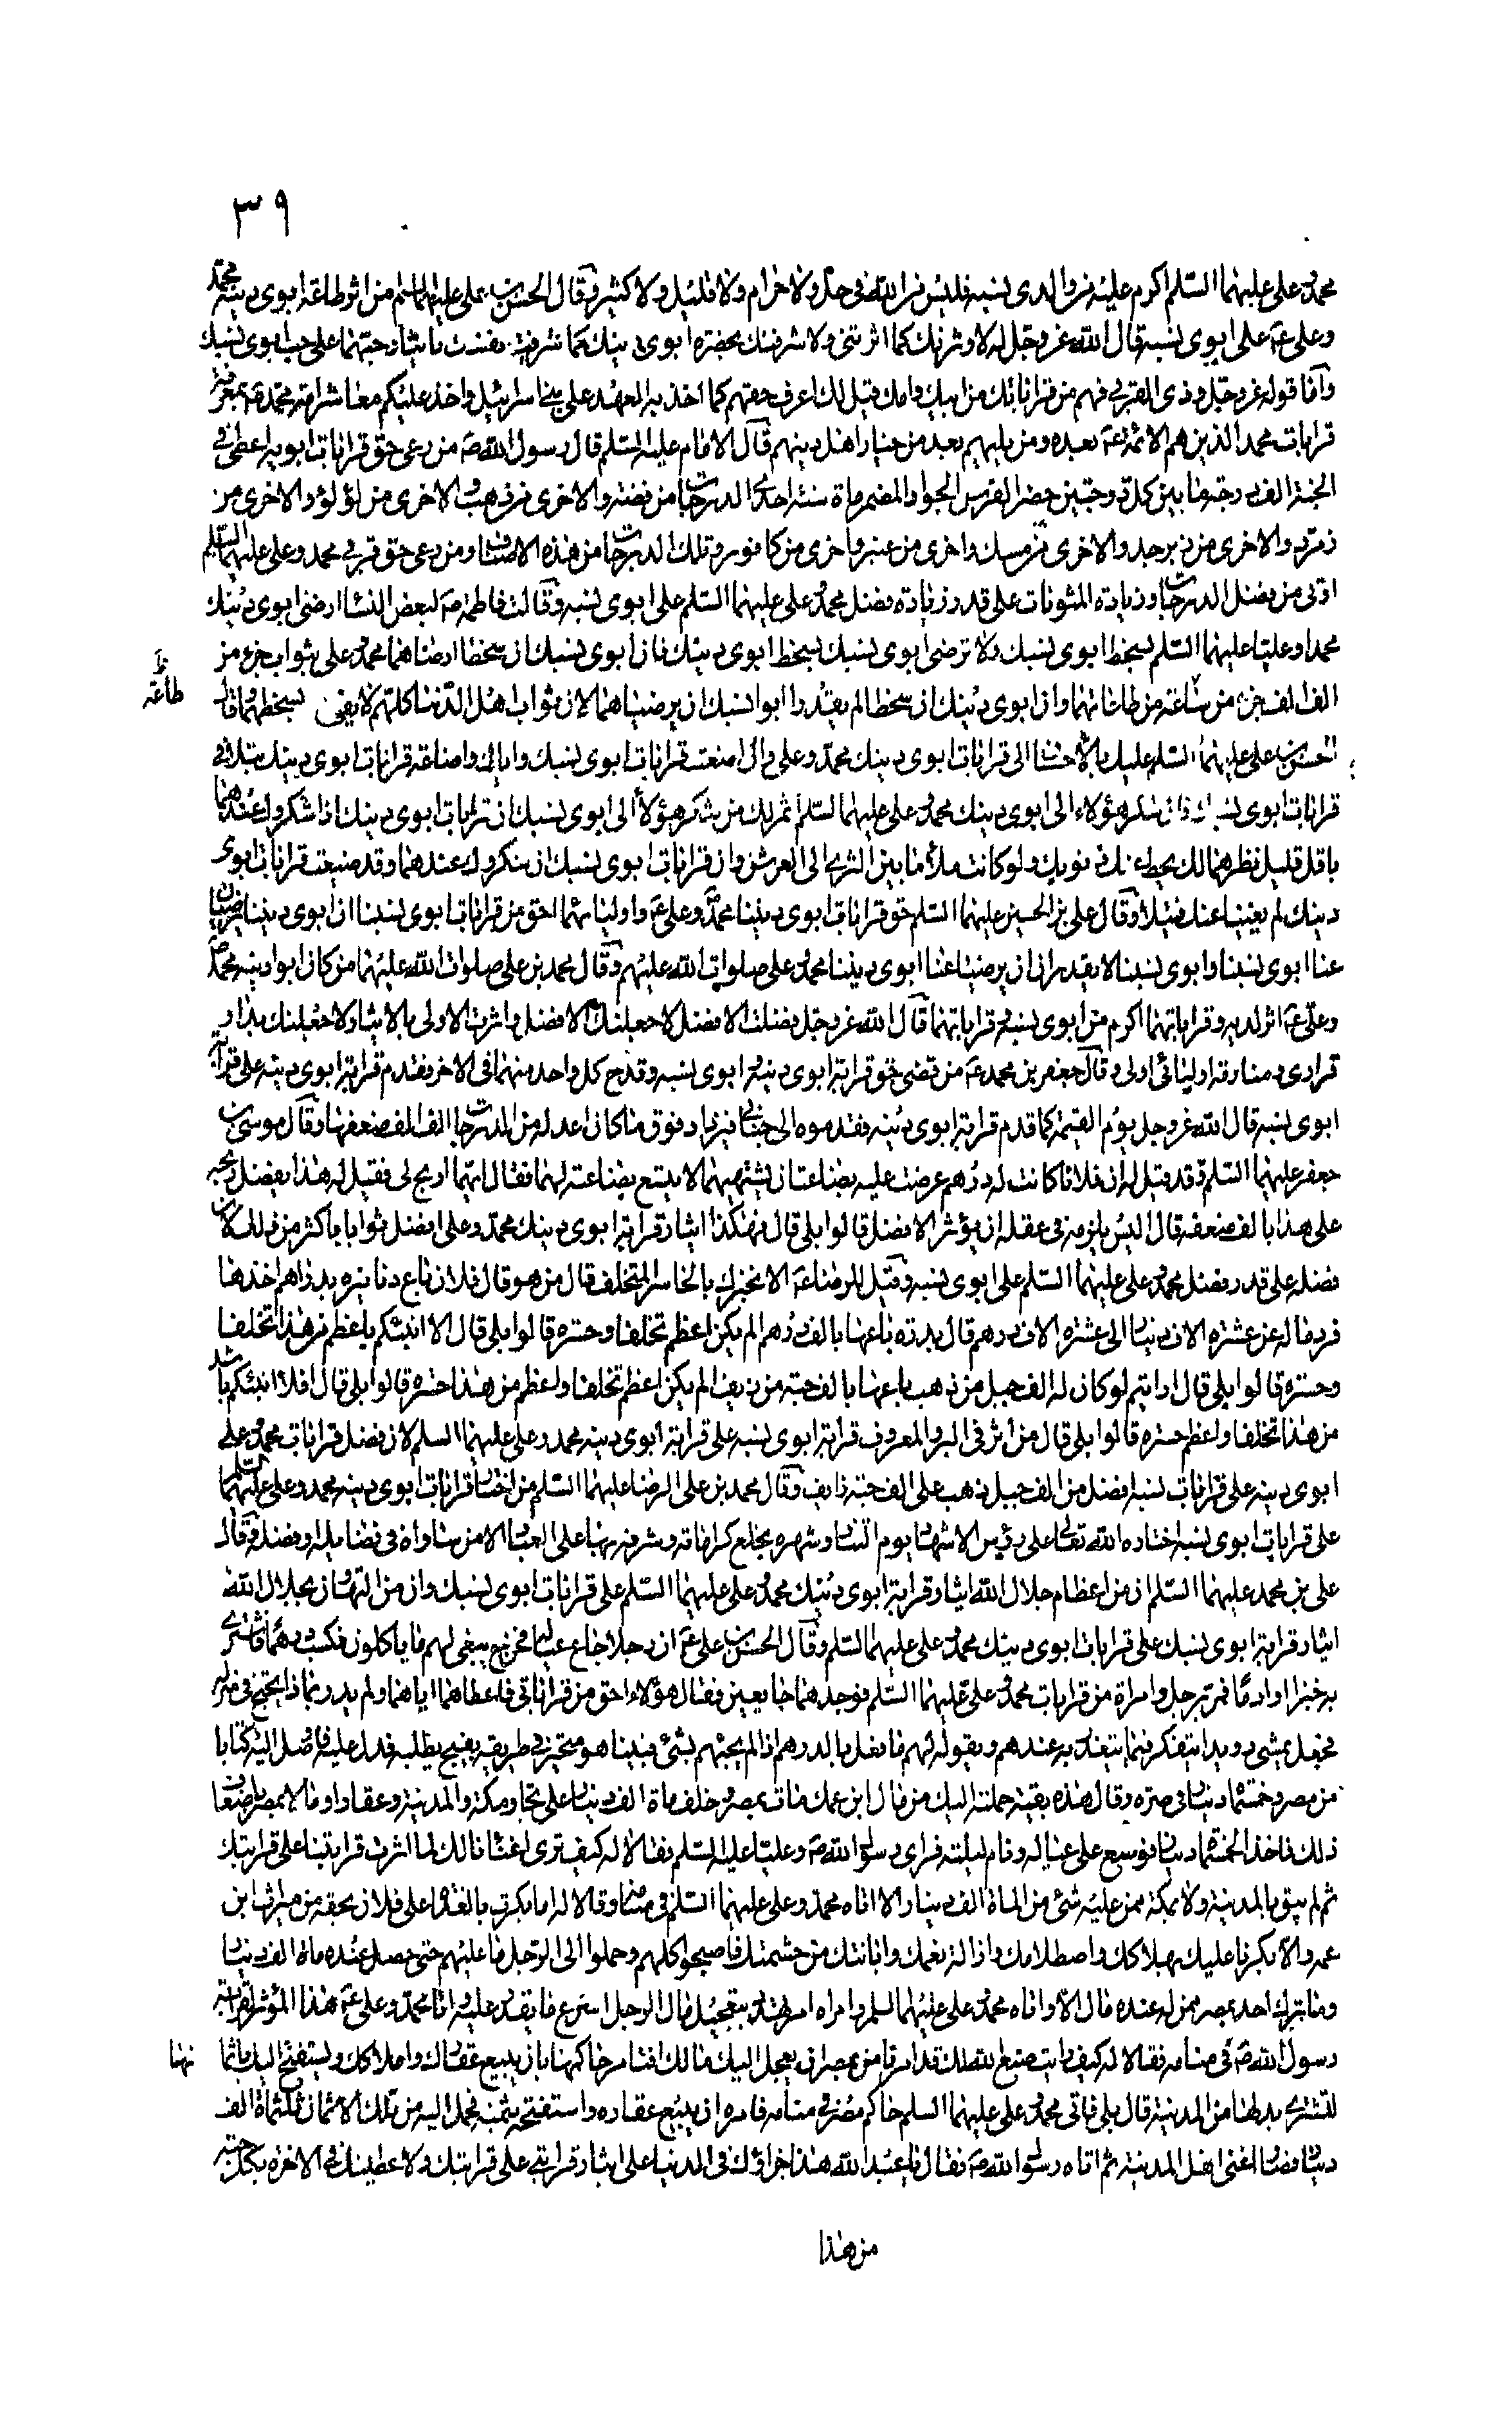 ٣٩
محمد وعلى عليهما السلم اكرم عليه من والدى نسبه فليس من الله فى حل ولا حرام ولا قليل ولا كثير وقال الحسن بن على عليهما السلم من اثر طاعة ابوى دينه محمد
وعلى ع على ابوى نسبه قال الله عز وجل له لاوثرنك كما اثرتنى ولاشرفنك بحضرة ابوى دينك كما شرفت نفسك بايثار حبهما على حب ابوى نسبك
واما قوله عز وجل وذى القربى فهم من قراباتك من ابيك وامك قيل لك اعرف حقهم كما اخذ به العهد على بنى اسرائيل واخذ عليكم معاشر امة محمد ص بمعرفة
قرابات محمد الذين هم الائمة ع بعده ومن يليهم بعد من خيار اهل دينهم قال الامام عليه السلم قال رسول الله ص من رعى حق قرابات ابويه اعطى فى
الجنة الف درجة ما بين كل درجتين حضر الفرس الجواد المضمر ماة سنة احدى الدرجات من فضة والاخرى من ذهب والاخرى من لؤلؤ والاخرى من
زمرد والاخرى من زبرجد والاخرى من مسك واخرى من عنبر واخرى من كافور وتلك الدرجات من هذه الاصناف ومن رعى حق قربى محمد وعلى عليهما السلم
اوتى من فضل الدرجات وزيادة المثوبات على قدر زيادة فضل محمد وعلى عليهما السلم على ابوى نسبه وقالت فاطمة ص لبعض النساء ارضى ابوى دينك
محمدا وعليا عليهما السلم بسخط ابوى نسبك ولا ترضى ابوى نسبك بسخط ابوى دينك فان ابوى نسبك ان سخطا ارضاهما محمد وعلى بثواب جزء من
الف الف جزء من ساعة من طاعاتهما وان ابوى دينك ان سخطا لم يقدر ابوا نسبك ان يرضياهما لان ثواب اهل الدنيا كلهم لا يفى بسخطهما وقال
ظ طاعة
الحسن بن على عليهما السلم عليك بالاحسان الى قرابات ابوى دينك محمد وعلى وان اضعت قرابات ابوى نسبك واياك واضاعة قرابات ابوى دينك بتلافى
قرابات ابوى نسبك فان شكر هؤلاء الى ابوى دينك محمد وعلى عليهما السلم اثمر لك من شكر هؤلاء الى ابوى نسبك ان قرابات ابوى دينك اذا شكروك عندهما
باقل قليل نظرهما لك يحط عنك ذنوبك ولو كانت ملاء ما بين الثرى الى العرش وان قرابات ابوى نسبك ان شكروك عندهما وقد ضيعت قرابات ابوى
دينك لم يغنيا عنك فتيلا وقال على بن الحسين عليهما السلم حق قرابات ابوى ديننا محمد وعلى ع واوليائهما احق من قرابات ابوى نسبنا ان ابوى ديننا يرضيان
عنا ابوى نسبنا وابوى نسبنا لا يقدران ان يرضيا عنا ابوى ديننا محمد وعلى صلوات الله عليهم وقال محمد بن على صلوات الله عليهما من كان ابوا دينه محمد ص
وعلى ع اثر لديه وقراباتهما اكرم من ابوى نسبه وقراباتهما قال الله عز وجل فضلت الافضل لاجعلنك الافضل واثرت الاولى بالايثار لاجعلنك بدار
قرارى ومنادمة اوليائى اولى وقال جعفر بن محمد ع من ضاق عن قضاء حق قرابة ابوى دينه وابوى نسبه وقدح كل واحد منهما فى الاخر فقدم قرابة ابوى دينه على قرابة
ابوى نسبه قال الله عز وجل يوم القيمة كما قدم قرابة ابوى دينه فقدموه الى جنانى فيزداد فوق ما كان اعد له من الدرجات الف الف ضعفها وقال موسى بن
جعفر عليهما السلم وقد قيل له ان فلانا كانت له الف درهم عرضت عليه بضاعتان يشتهيهما لا يتسع بضاعته لهما فقال ايهما اربح لى فقيل له هذا يفضل ربحه
على هذا بالف ضعف قال اليس يلزمه فى عقله ان يؤثر الافضل قالوا بلى قال فهكذا ايثار قرابة ابوى دينك محمد وعلى افضل ثوابا باكثر من ذلك لان
فضله على قدر فضل محمد وعلى عليهما السلم على ابوى نسبه وقيل للرضا ع الا نخبرك بالخاسر المتخلف قال من هو قال فلان باع دنانيره بدراهم اخذها
فرد ماله عن عشرة الاف دينار الى عشرة الاف درهم قال بدرة باعها بالف درهم الم يكن اعظم تخلفا وحسرة قالوا بلى قال الا انبئكم باعظم من هذا تخلفا
وحسرة قالوا بلى قال ارايتم لو كان له الف جبل من ذهب باعها بالف حبة من زيف الم يكن اعظم تخلفا واعظم من هذا حسرة قالوا بلى قال افلا انبئكم باشد
من هذا تخلفا واعظم حسرة قالوا بلى قال من اثر فى البر والمعروف قرابة ابوى نسبه على قرابة ابوى دينه محمد وعلى عليهما السلم لان فضل قرابات محمد وعلى
ابوى دينه على قرابات نسبه افضل من الف جبل ذهب على الف حبة زايف وقال محمد بن على الرضا عليهما السلم من اختار قرابات ابوى دينه محمد وعلى عليهما السلم
على قرابات ابوى نسبه اختاره الله تعالى على رؤس الاشهاد يوم التناد وشهره بخلع كراماته وشرفه بها على العباد الا من ساواه فى فضايله او فضله وقال
على بن محمد عليهما السلم ان من اعظام جلال الله ايثار قرابة ابوى دينك محمد وعلى عليهما السلم على قرابات ابوى نسبك وان من التهاون بجلال الله
ايثار قرابة ابوى نسبك على قرابات ابوى دينك محمد وعلى عليهما السلم وقال الحسن بن على ع ان رجلا جاع عياله فخرج يبغى لهم ما ياكلون فكسب درهما فاشترى
به خبزا واداما فمر برجل وامراة من قرابات محمد وعلى عليهما السلم فوجدهما جايعين فقال هؤلاء احق من قراباتى فاعطاهما اياهما ولم يدر بماذا يحتج فى منزله
فجعل يمشى رويدا يتفكر فيما يتعذر به عندهم ويقوله لهم ما فعل بالدرهم اذ لم يجئهم بشئ فبينا هو متحير فى طريقه بفيج يطلبه فدل عليه فاوصل اليه كتابا
من مصر وخمسمائة دينار فى صرة وقال هذه بقية حملته اليك من مال ابن عمك مات بمصر وخلف ماة الف دينار على تجار مكة والمدينة وعقارا ومالا بمصر باضعاف
ذلك فاخذ الخمسمائة دينار فوسع على عياله ونام ليلته فراى رسول الله ص وعليا عليه السلم فقالا له كيف ترى اغناءنا لك لما اثرت قرابتنا على قرابتك
ثم لم يبق بالمدينة ولا بمكة ممن عليه شئ من الماة الف دينار الا اتاه محمد وعلى عليهما السلم فى منامه وقالا له اما بكرت بالغداة على فلان بحقه من ميراث ابن
عمه والا بكرنا عليك بهلاكك واصطلامك وازالة نعمك وابانتك من حشمتك فاصبحوا كلهم وحملوا الى الرجل ما عليهم حتى حصل عنده ماة الف دينار
وما ترك احد بمصر ممن له عنده مال الا واتاه محمد وعلى عليهما السلم وامراه امر تهدد بتعجيل مال الرجل اسرع ما يقدر عليه واتى محمد وعلى ع هذا المؤثر لقرابة
رسول الله ص فى منامه فقالا له كيف رايت صنع الله لك قد امرنا من بمصر ان يعجل اليك مالك افنامر حاكمها بان يبيع عقارك واملاكك ويستفتج اليك باثمانها
لتشترى بدلها من المدينة قال بلى فاتى محمد وعلى عليهما السلم حاكم مصر فى منامه فامراه ان يبيع عقاره واستفتجه بثمنه فحمل اليه من تلك الاثمان ثلثمائة الف
دينار فصار اغنى اهل المدينة ثم اتاه رسول الله ص فقال يا عبد الله هذا جزاؤك فى الدنيا على ايثار قرابتى على قرابتك ولاعطينك فى الاخرة بكل حبة
من هذا